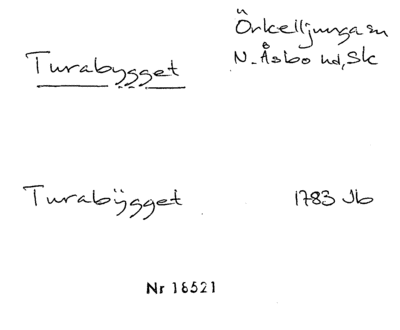 Turabygget
Örkelljunga sn
N. Åsbo hd, Sk
Turabÿgget 1783 Jb
Nr 16521